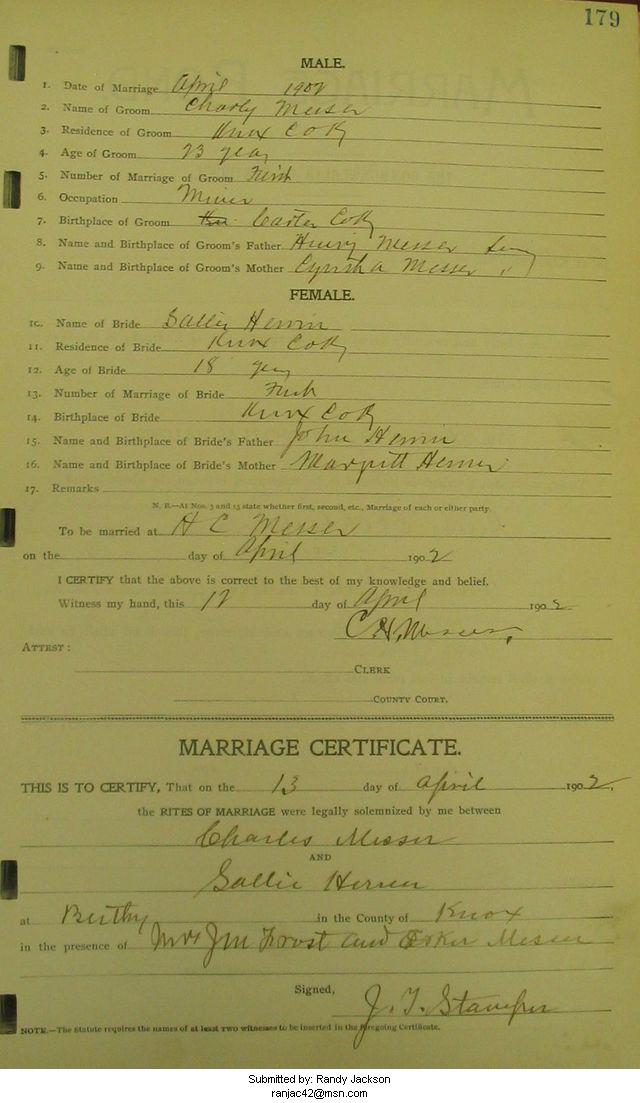 179
MALE.
1. Date of Marriage April 1902
2. Name of Groom Charly Messer
3. Residence of Groom Knox Co Ky
4. Age of Groom 23 year
5. Number of Marriage of Groom First
6. Occupation Miner
7. Birthplace of Groom Carter Co Ky
8. Name and Birthplace of Groom's Father Henry Messer
9. Name and Birthplace of Groom's Mother Cyntha Messer "
FEMALE.
10. Name of Bride Sallie Herrin
11. Residence of Bride Knox Co Ky
12. Age of Bride 18 year
13. Number of Marriage of Bride First
14. Birthplace of Bride Knox Co Ky
15. Name and Birthplace of Bride's Father John Herrin
16. Name and Birthplace of Bride's Mother Margritt Herrin
17. Remarks
N. B.—At Nos. 5 and 13 state whether first, second, etc., Marriage of each or either party.
To be married at H C Messer
on the day of April 1902
I CERTIFY that the above is correct to the best of my knowledge and belief.
Witness my hand, this 12 day of April 1902
C. H. Messer.
ATTEST:
CLERK
COUNTY COURT.
MARRIAGE CERTIFICATE.
THIS IS TO CERTIFY, That on the 13 day of April 1902.
the RITES OF MARRIAGE were legally solemnized by me between
Charles Messer
AND
Sallie Herren
at in the County of Knox
in the presence of Mrs Jm Frost and Messer
Signed,
J. T. Stamper
NOTE.—The Statute requires the names of at least two witnesses to be inserted in the foregoing Certificate.
Submitted by: Randy Jackson
ranjac42@msn.com